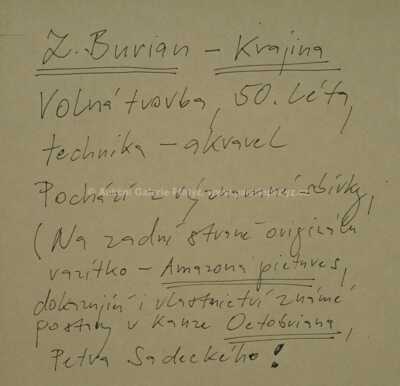 Z. Burian - Krajina
Volná tvorba, 50. léta,
technika - akvarel
Pochází z významné sbírky,
(Na zadní straně originálu
razítko - Amazona pictures,
dokazující i vlastnictví známé
postavy v kauze Octobriana,
Petra Sadeckého!